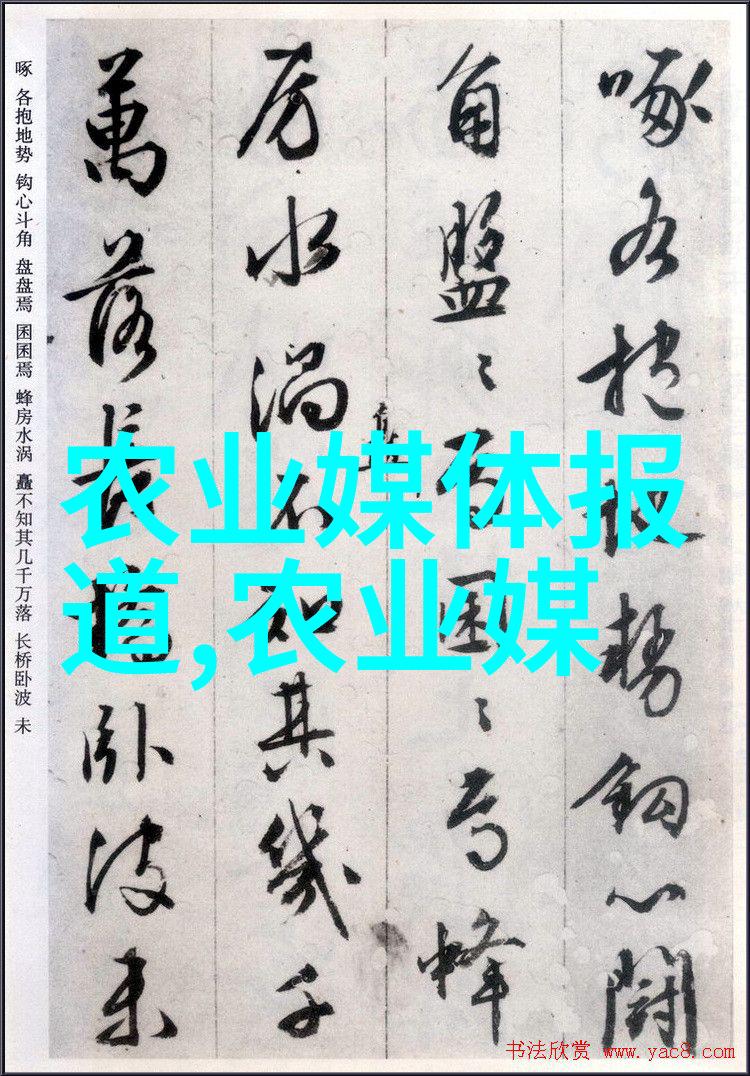 啄各抱地势钩心鬪
角盤〻焉囷〻焉蜂
房水渦不知其幾千
萬落長橋臥波未
啄 各抱地势 钩心斗角 盘盘焉 囷囷焉 蜂房水涡 矗不知其几千万落 长桥卧波 未
矗
农业媒体报
道,农业媒
书法欣赏 www.yac8.com